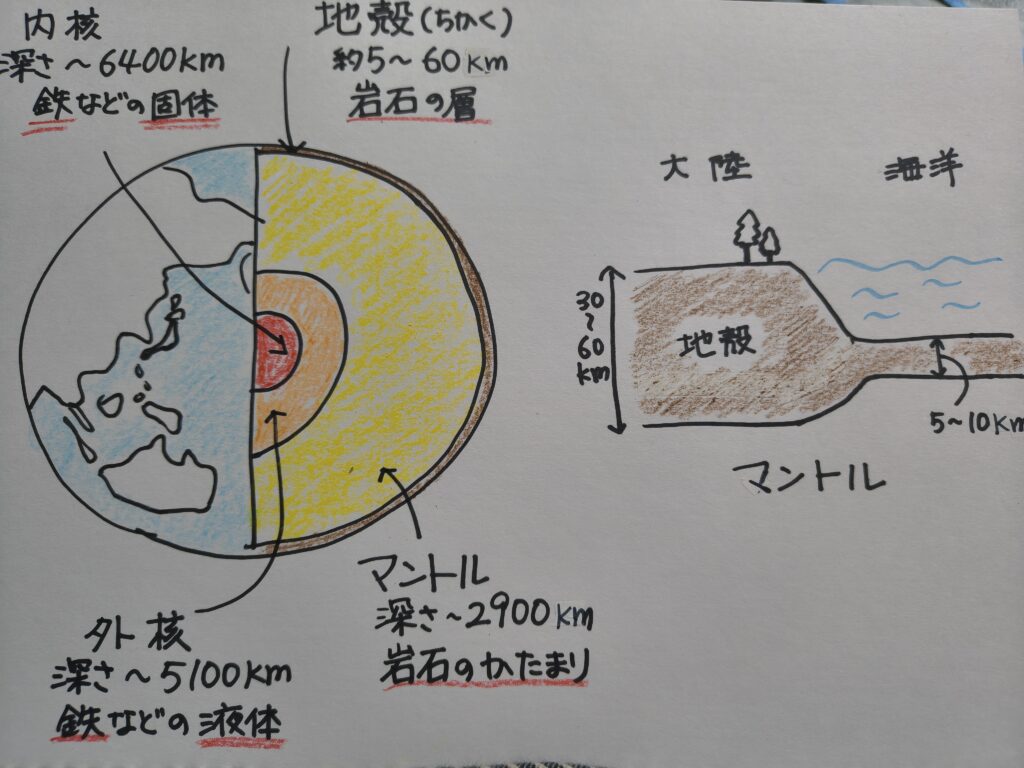 内核
深さ～6400km
鉄などの固体
地殻(ちかく)
約5～60km
岩石の層
大陸
海洋
30
～
60
km
地殻
5～10km
マントル
マントル
深さ～2900km
岩石のかたまり
外核
深さ～5100km
鉄などの液体